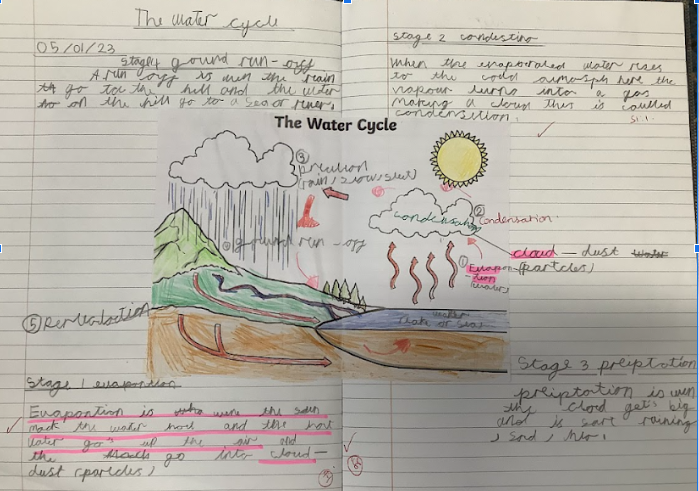 The water cycle
05/01/23
Stage 4 ground run-off
A run off is wen the rain
go to the hill and the water
on the hill go to a sea or river.
Stage 2
When the evaporated water rises
to the cold atmosph here the
vapour turns into a gas
making a cloud this is caulled
condensation.
The Water Cycle
③
(rain, snow, sleet)
② Condensation
Condensation
④ ground run-off
①
cloud - dust
(particles)
water
lake or sea
⑤
Stage 1
Evaportion is were the sun
made the water hot and the hot
water go's up the air and
the go into cloud -
dust (particles)
Stage 3 preiptation
preiptation is wen
the cloud gets big
and is sart raining